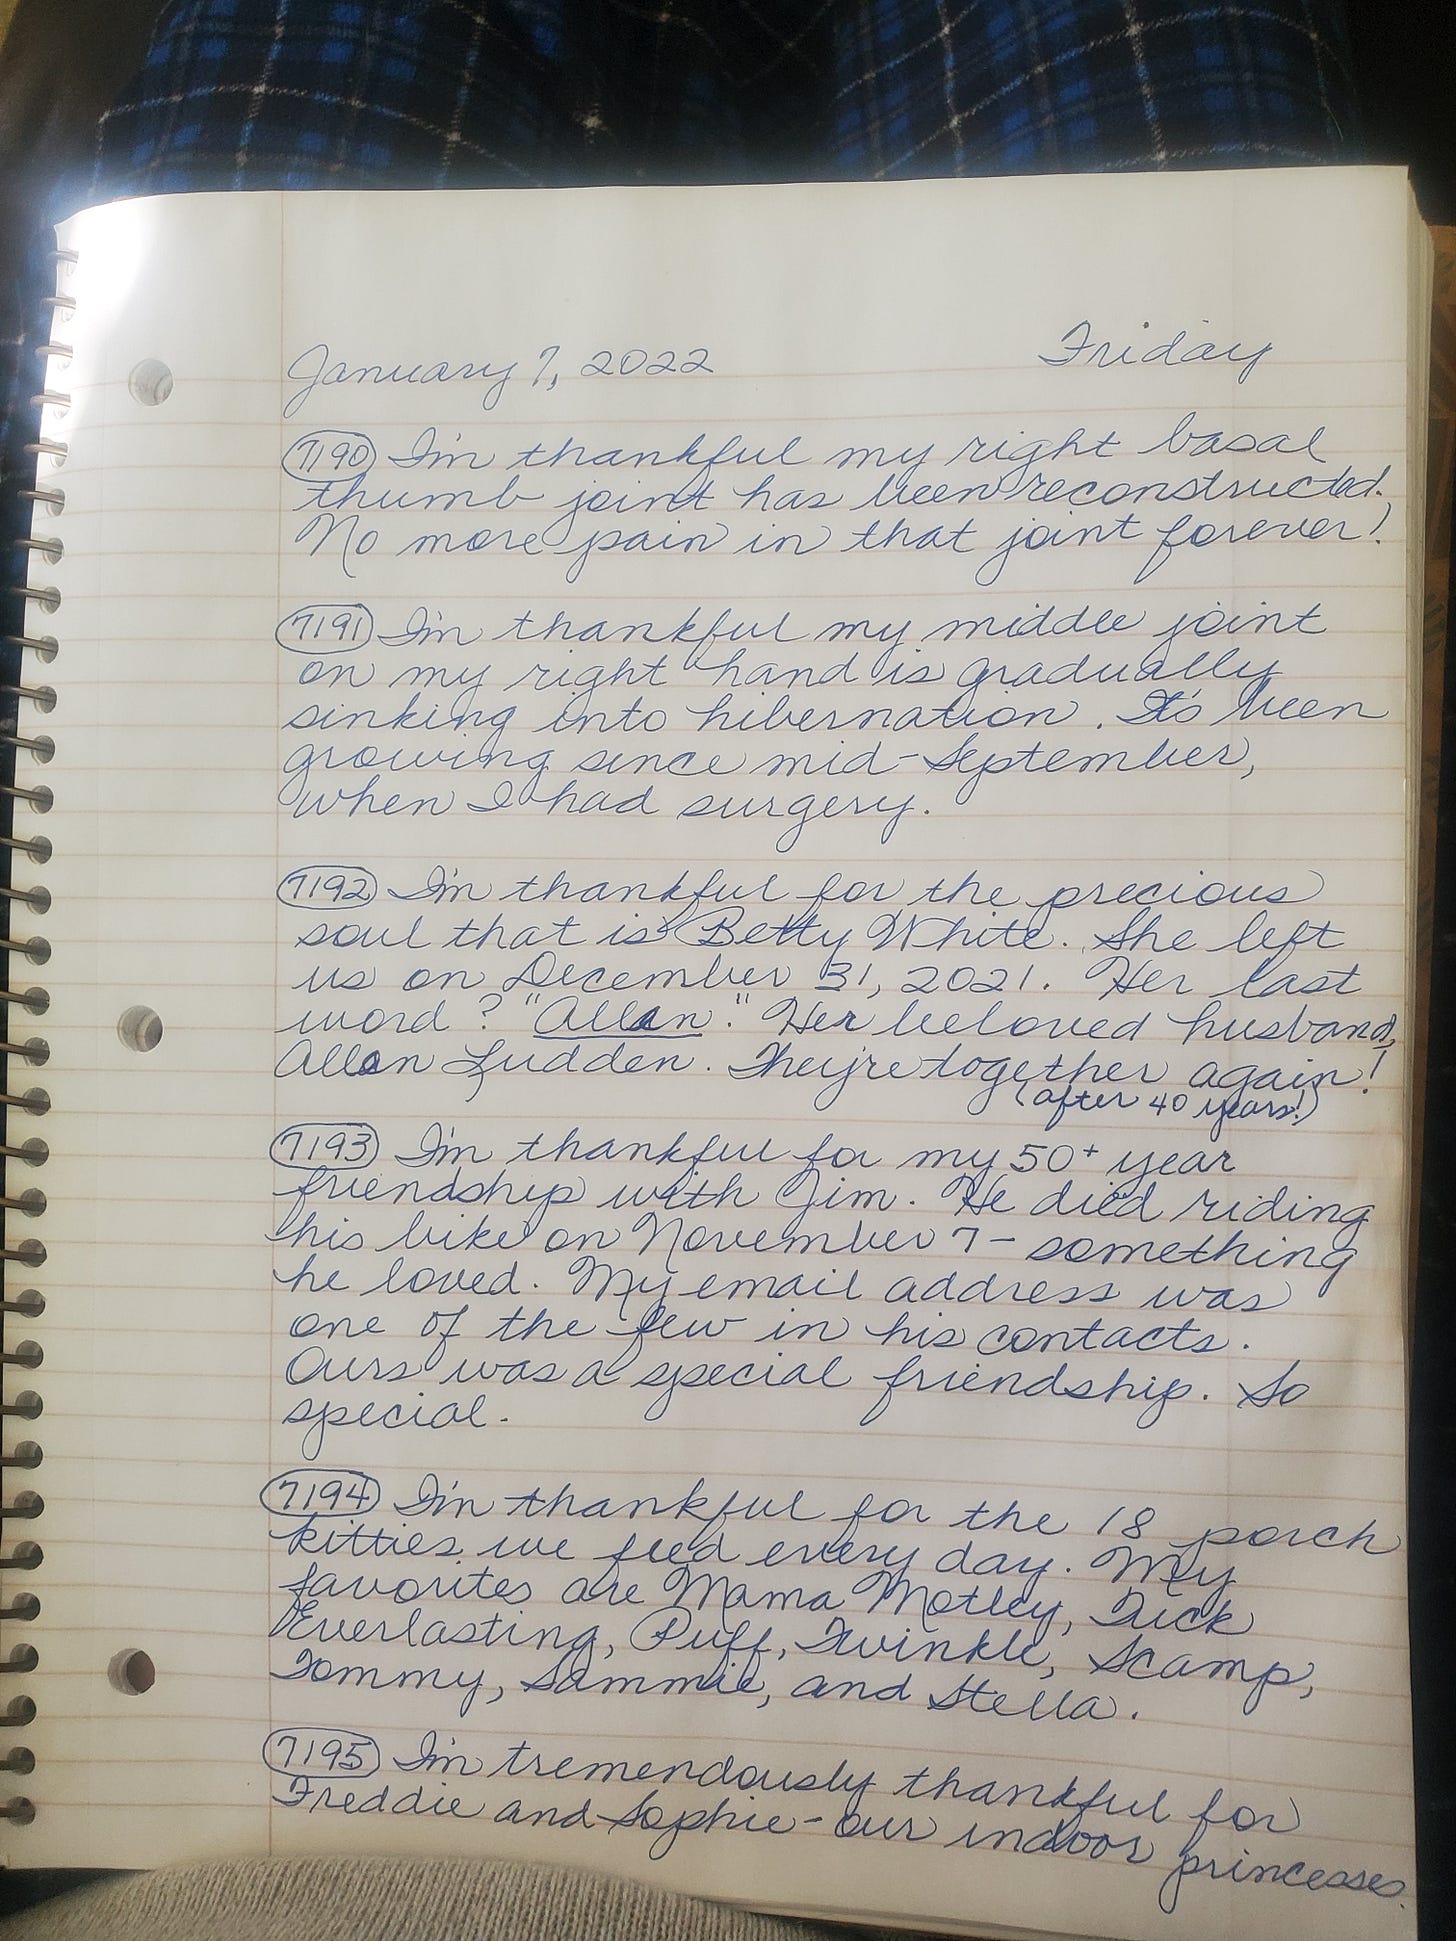 January 7, 2022 Friday
7190 I'm thankful my right basal
thumb joint has been reconstructed.
No more pain in that joint forever!
7191 I'm thankful my middle joint
on my right hand is gradually
sinking into hibernation. It's been
growing since mid-September,
when I had surgery.
7192 I'm thankful for the precious
soul that is Betty White. She left
us on December 31, 2021. Her last
word? "Allen." Her beloved husband,
Allen Ludden. They're together again!
(after 40 years!)
7193 I'm thankful for my 50+ year
friendship with Jim. He died riding
his bike on November 7 - something
he loved. My email address was
one of the few in his contacts.
Ours was a special friendship. So
special.
7194 I'm thankful for the 18 porch
kitties we feed every day. My
favorites are Mama Motley, Tuck
Everlasting, Puff, Twinkle, Scamp,
Tommy, Sammie, and Stella.
7195 I'm tremendously thankful for
Freddie and Sophie - our indoor princesses.